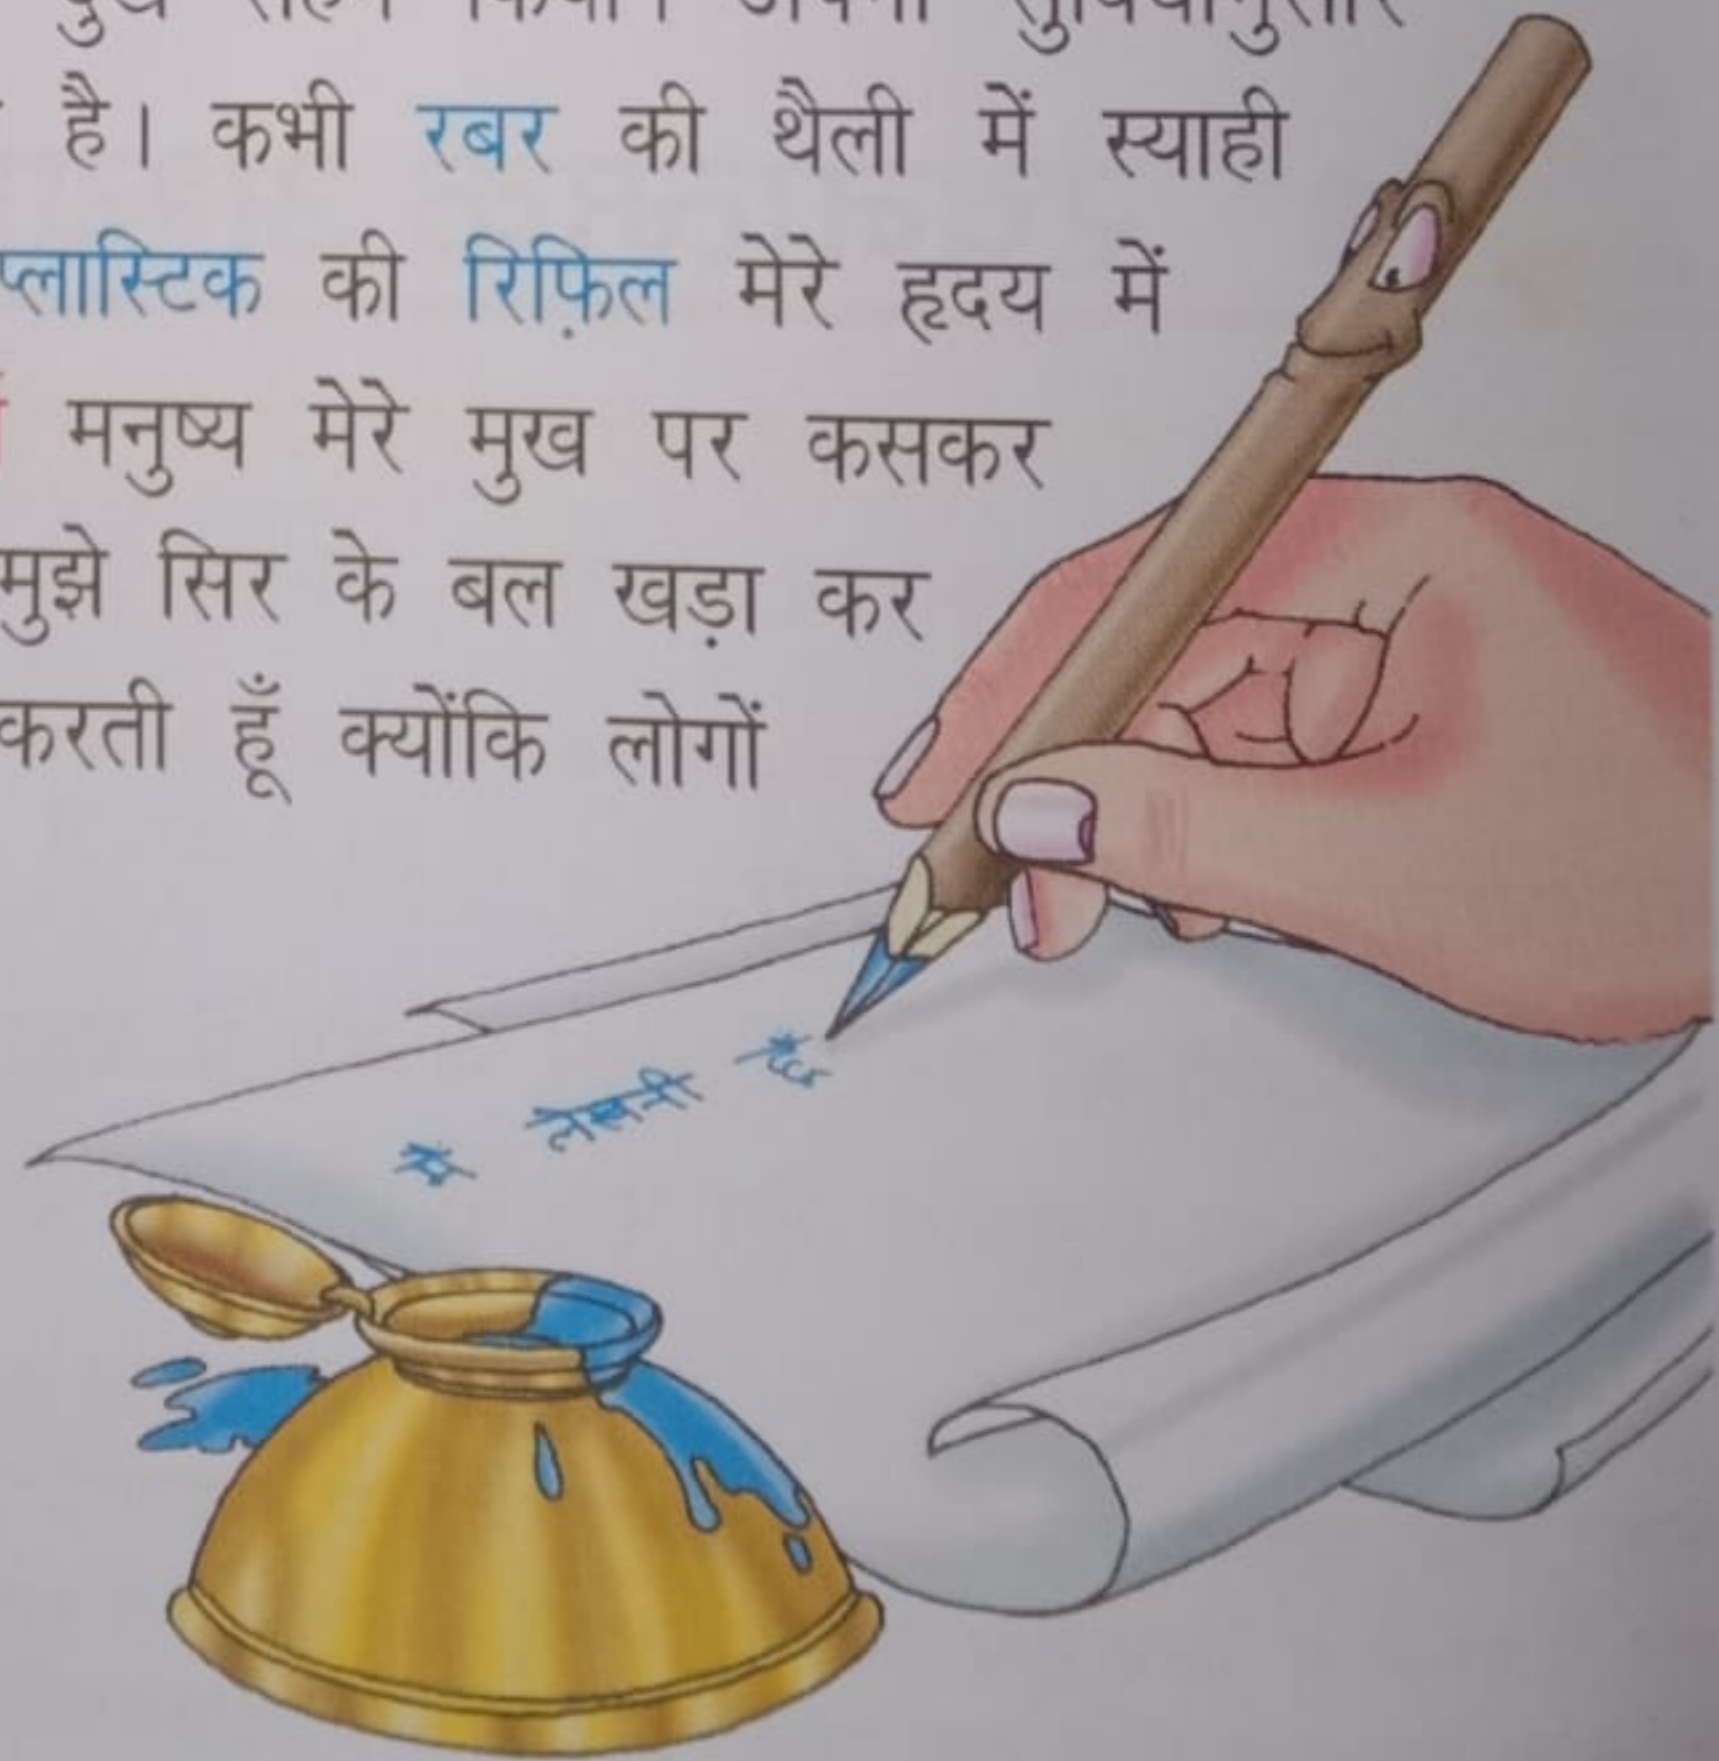 है। कभी रबर की थैली में स्याही
प्लास्टिक की रिफ़िल मेरे हृदय में
मनुष्य मेरे मुख पर कसकर
मुझे सिर के बल खड़ा कर
करती हूँ क्योंकि लोगों
मैं लेखनी हूँ